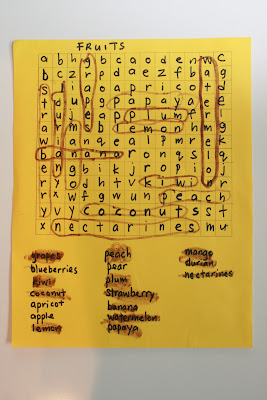 FRUITS
a b h g b c a o d e n w c
b c z r p d a e z f b a g
i a o a p r i c o t d
p g p a p a y a e
e a p p l u m f r
m b e l e m o n h m g
a n q e a l p m r e k
b a n a n a r o n q s l q
b i k j r o p i
o d h t v k i w i o r
w f g w u n p e a c h
y v y c o c o n u t s s t
x n e c t a r i n e s m u
grapes
blueberries
kiwi
coconut
apricot
apple
lemon
peach
pear
plum
strawberry
banana
watermelon
papaya
mango
durian
nectarines